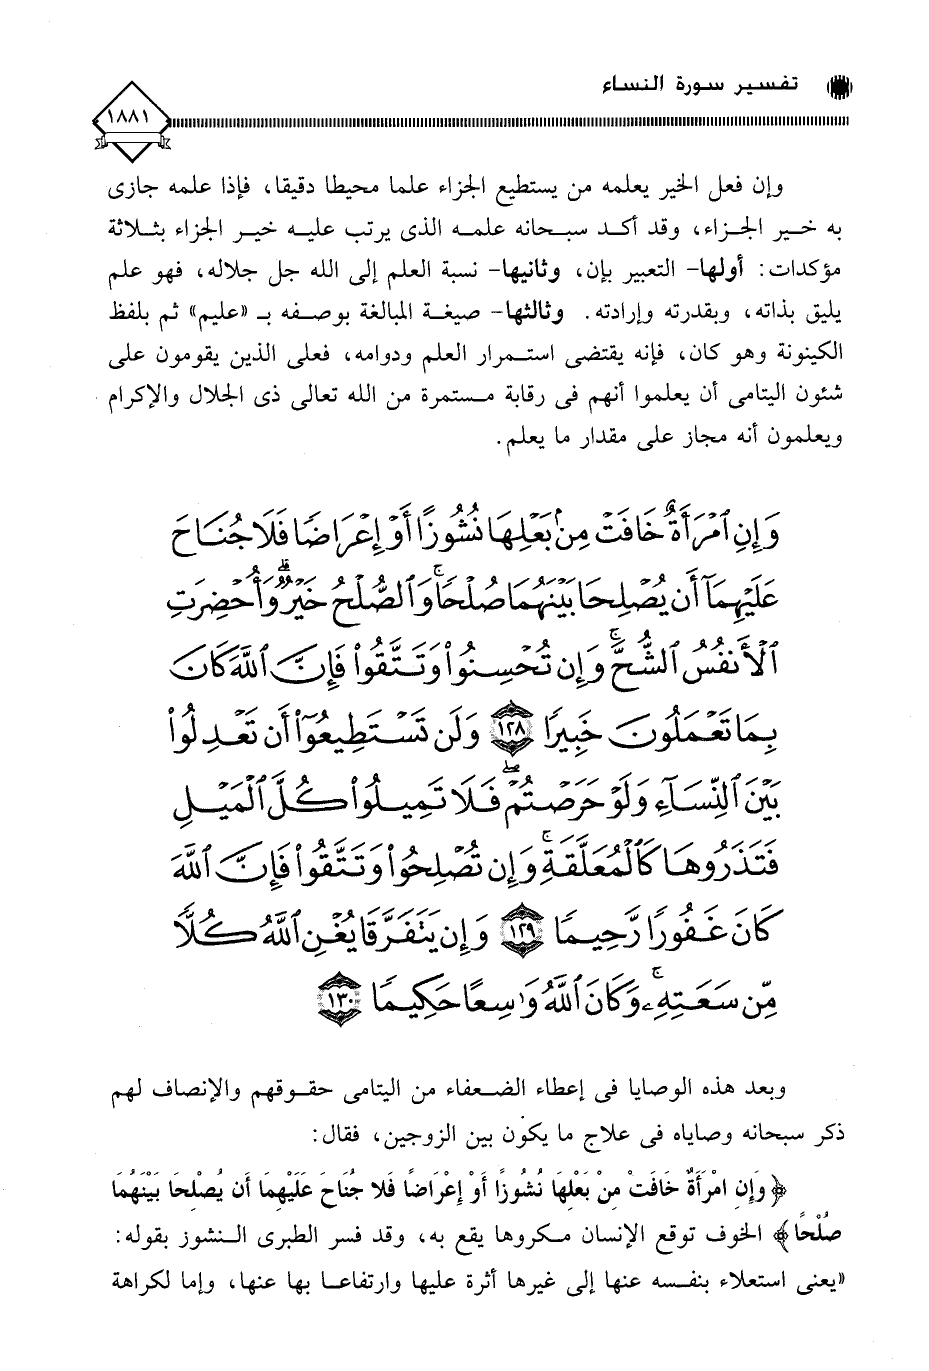 تفسير سورة النساء
١٨٨١
وإن فعل الخير يعلمه من يستطيع الجزاء علما محيطا دقيقا، فإذا علمه جازى
به خير الجزاء، وقد أكد سبحانه علمه الذى يرتب عليه خير الجزاء بثلاثة
مؤكدات: أولها- التعبير بإن، وثانيها- نسبة العلم إلى الله جل جلاله، فهو علم
يليق بذاته، وبقدرته وإرادته. وثالثها- صيغة المبالغة بوصفه بـ «عليم» ثم بلفظ
الكينونة وهو كان، فإنه يقتضى استمرار العلم ودوامه، فعلى الذين يقومون على
شئون اليتامى أن يعلموا أنهم فى رقابة مستمرة من الله تعالى ذى الجلال والإكرام
ويعلمون أنه مجاز على مقدار ما يعلم.
وَإِنِ ٱمْرَأَةٌ خَافَتْ مِنۢ بَعْلِهَا نُشُوزًا أَوْ إِعْرَاضًا فَلَا جُنَاحَ
عَلَيْهِمَآ أَن يُصْلِحَا بَيْنَهُمَا صُلْحًا ۚ وَٱلصُّلْحُ خَيْرٌ ۗ وَأُحْضِرَتِ
ٱلْأَنفُسُ ٱلشُّحَّ ۚ وَإِن تُحْسِنُوا۟ وَتَتَّقُوا۟ فَإِنَّ ٱللَّهَ كَانَ
بِمَا تَعْمَلُونَ خَبِيرًا ١٢٨ وَلَن تَسْتَطِيعُوٓا۟ أَن تَعْدِلُوا۟
بَيْنَ ٱلنِّسَآءِ وَلَوْ حَرَصْتُمْ ۖ فَلَا تَمِيلُوا۟ كُلَّ ٱلْمَيْلِ
فَتَذَرُوهَا كَٱلْمُعَلَّقَةِ ۚ وَإِن تُصْلِحُوا۟ وَتَتَّقُوا۟ فَإِنَّ ٱللَّهَ
كَانَ غَفُورًا رَّحِيمًا ١٢٩ وَإِن يَتَفَرَّقَا يُغْنِ ٱللَّهُ كُلًّا
مِّن سَعَتِهِۦ ۚ وَكَانَ ٱللَّهُ وَٰسِعًا حَكِيمًا ١٣٠
وبعد هذه الوصايا فى إعطاء الضعفاء من اليتامى حقوقهم والإنصاف لهم
ذكر سبحانه وصاياه فى علاج ما يكون بين الزوجين، فقال:
﴿وَإِنِ امْرَأَةٌ خَافَتْ مِنْ بَعْلِهَا نُشُوزًا أَوْ إِعْرَاضًا فَلا جُنَاحَ عَلَيْهِمَا أَن يُصْلِحَا بَيْنَهُمَا
صُلْحًا﴾ الخوف توقع الإنسان مكروها يقع به، وقد فسر الطبرى النشوز بقوله:
«يعنى استعلاء بنفسه عنها إلى غيرها أثرة عليها وارتفاعا بها عنها، وإما لكراهة